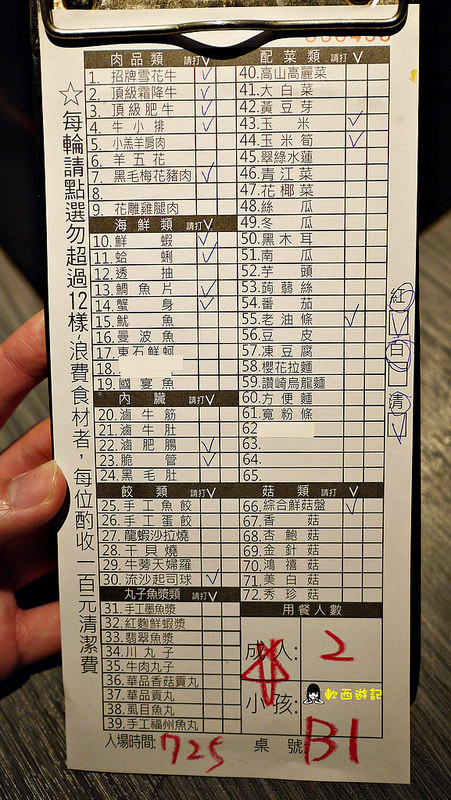 ☆每輪請點選勿超過12樣，浪費食材者，每位酌收一百元清潔費
肉品類 請打V
1. 招牌雪花牛 V
2. 頂級霜降牛 V
3. 頂級肥牛 V
4. 牛小排 V
5. 小羔羊肩肉
6. 羊五花
7. 黑毛梅花豬肉 V
8.
9. 花雕雞腿肉
海鮮類 請打V
10. 鮮蝦 V
11. 蛤蜊 V
12. 透抽
13. 鯛魚片 V
14. 蟹身 V
15. 魷魚
16. 曼波魚
17. 東石鮮蚵
18.
19. 國宴魚
內臟 請打V
20. 滷牛筋
21. 滷牛肚
22. 滷肥腸 V
23. 脆管 V
24. 黑毛肚
餃類 請打V
25. 手工魚餃
26. 手工蛋餃
27. 龍蝦沙拉燒
28. 干貝燒
29. 牛蒡天婦羅
30. 流沙起司球 V
丸子魚漿類 請打V
31. 手工墨魚漿
32. 紅麴鮮蝦漿
33. 翡翠魚漿
34. 川丸子
35. 牛肉丸子
36. 華品香菇貢丸
37. 華品貢丸
38. 虱目魚丸
39. 手工福州魚丸
入場時間: 725
配菜類 請打V
40. 高山高麗菜
41. 大白菜
42. 黃豆芽
43. 玉米 V
44. 玉米筍 V
45. 翠綠水蓮
46. 青江菜
47. 花椰菜
48. 絲瓜
49. 冬瓜
50. 黑木耳
51. 南瓜
52. 芋頭
53. 蒟蒻絲
54. 番茄
55. 老油條 V
56. 豆皮
57. 凍豆腐
58. 櫻花拉麵
59. 讚崎烏龍麵
60. 方便麵
61. 寬粉條
62
63.
64.
65.
菇類 請打V
66. 綜合鮮菇盤 V
67. 香菇
68. 杏鮑菇
69. 金針菇
70. 鴻禧菇
71. 美白菇
72. 秀珍菇
用餐人數
成人: 2
小孩:
軟西遊記
桌號: B1
紅 V
白
清 V